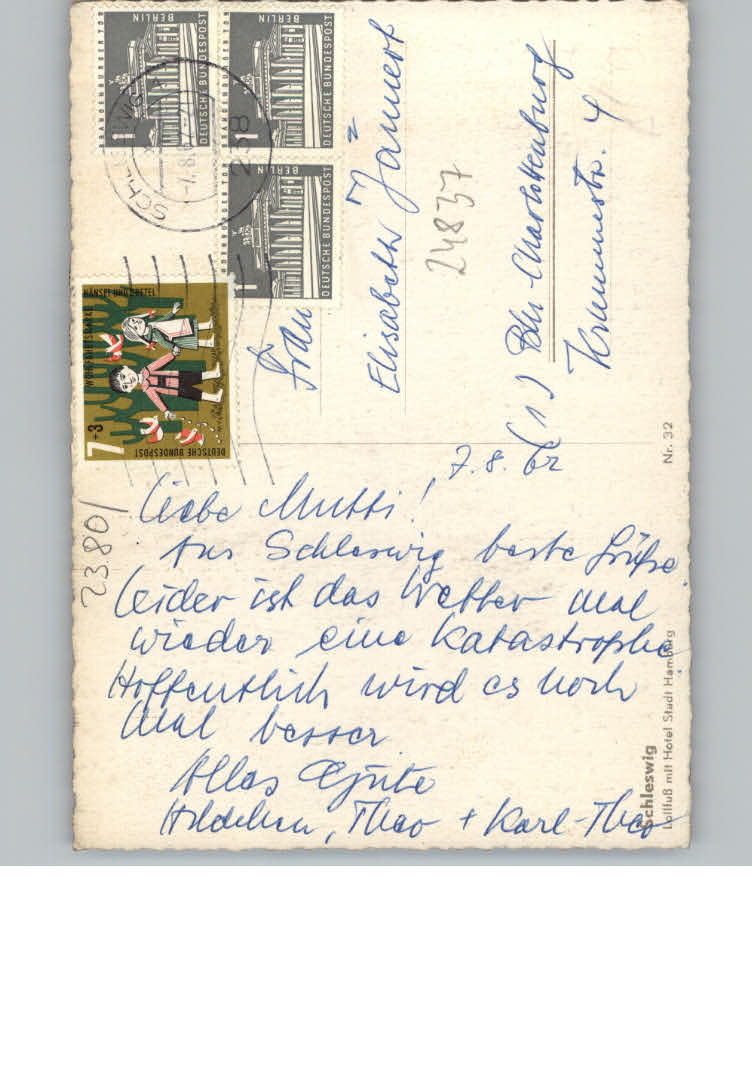 7.8.62
Liebe Mutti!
Aus Schleswig beste Grüße
Leider ist das Wetter mal
wieder eine Katastrophe
Hoffentlich wird es noch
mal besser
Alles Gute
Hildchen, Theo + Karl-Theo
Frau
Elisabeth Jannert
(1) Bln-Charlottenburg
Krummestr. 4
24837
23801
Schleswig
Lollfuß mit Hotel Stadt Hamburg
Nr. 32
BRANDENBURGER TOR
BERLIN
DEUTSCHE BUNDESPOST
1
BRANDENBURGER TOR
BERLIN
DEUTSCHE BUNDESPOST
1
BRANDENBURGER TOR
BERLIN
DEUTSCHE BUNDESPOST
1
HÄNSEL UND GRETEL
WOHLFAHRTSMARKE
7+3
DEUTSCHE BUNDESPOST
SCHLESWIG
238